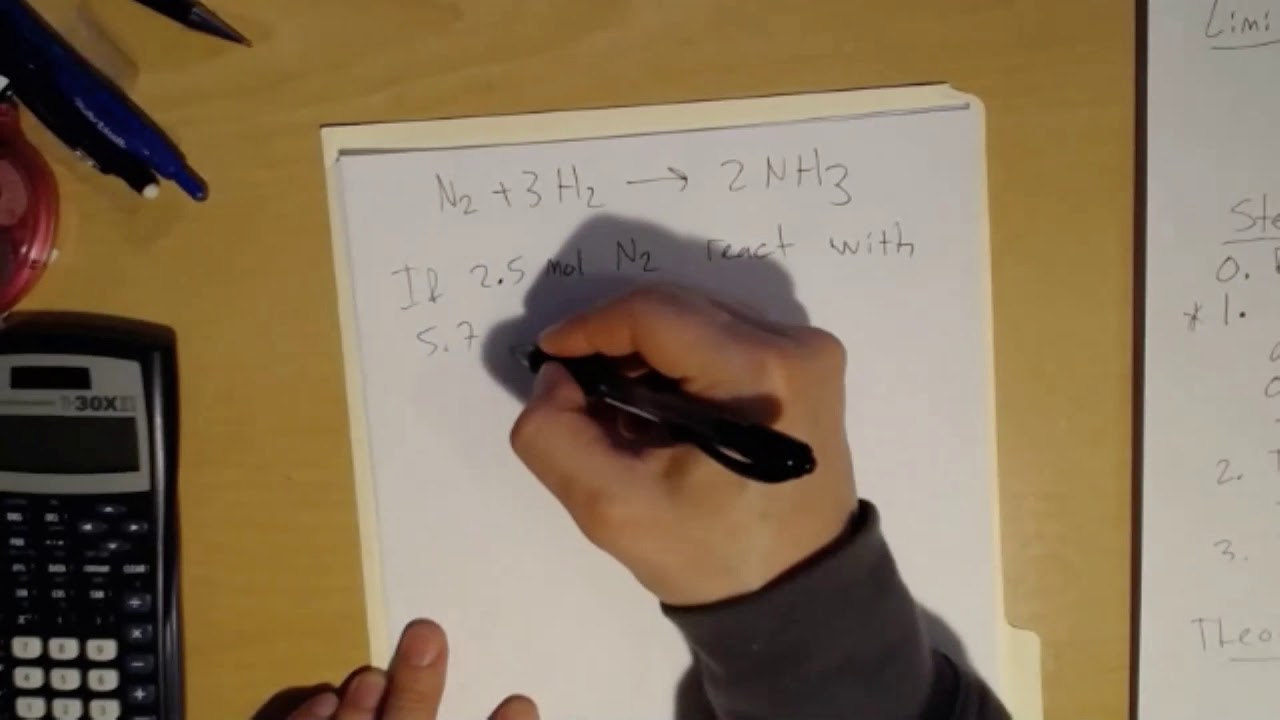 N2 + 3 H2 → 2 NH3
If 2.5 mol N2 react with
5.7
Limi
Ste
0.
* 1.
2.
3.
Theo
30X